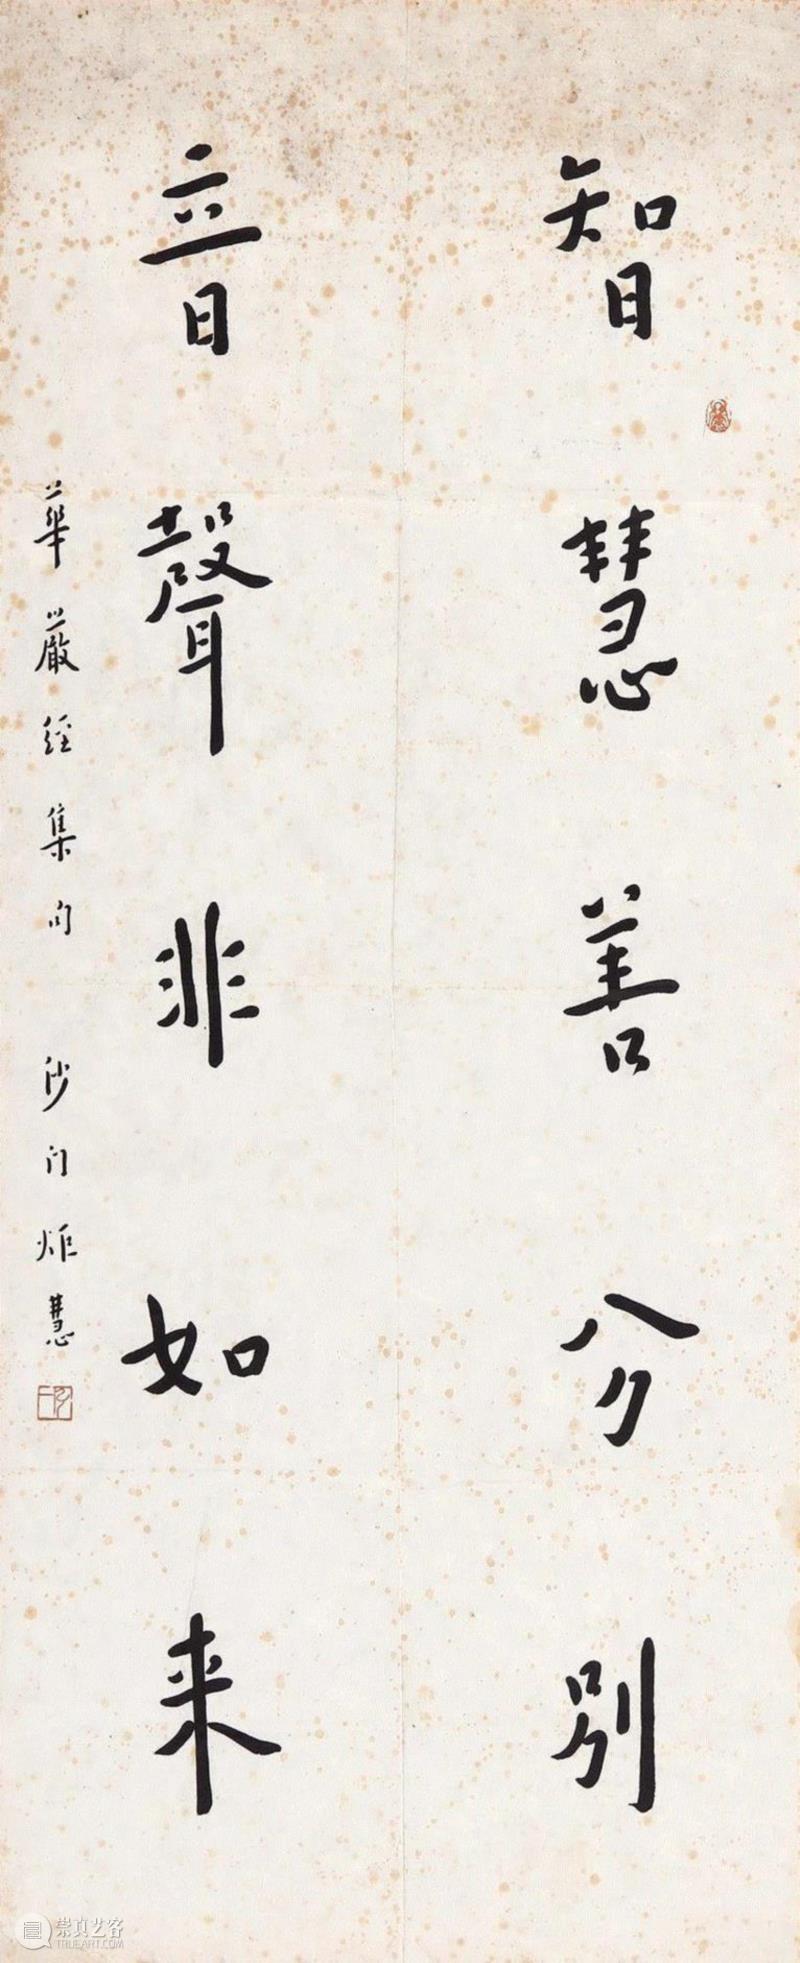 智慧善分别
音聲非如来
華嚴經集句 沙门炬慧
崇真艺客
TRUEART.COM